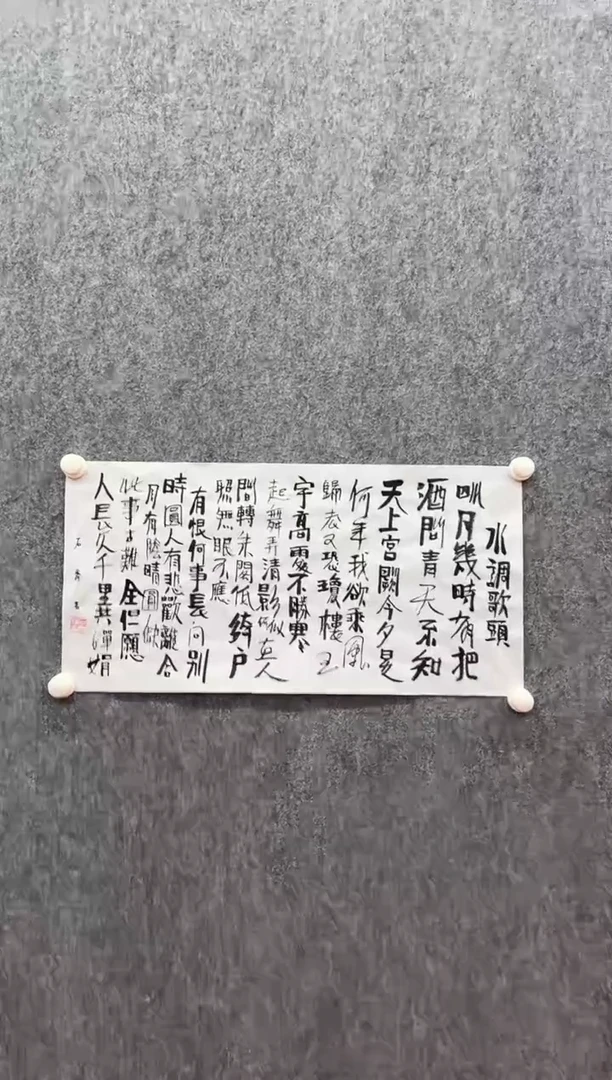 水調歌頭
明月幾時有把
酒問青天不知
天上宮闕今夕是
何年我欲乘風
歸去又恐瓊樓玉
宇高處不勝寒
起舞弄清影何似在人
間轉朱閣低綺户
照無眠不應
有恨何事長向别
時圓人有悲歡離合
月有陰晴圓缺
此事古難全但願
人長久千里共嬋娟